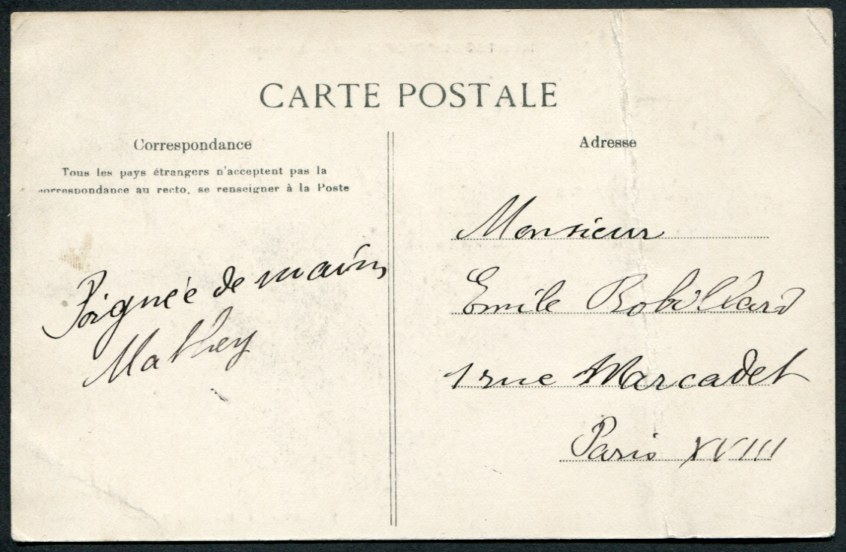 CARTE POSTALE
Correspondance
Tous les pays étrangers n'acceptent pas la
correspondance au recto, se renseigner à la Poste
Poignée de mains
Mathey
Adresse
Monsieur
Emile Robillard
1 rue Marcadet
Paris XVIII